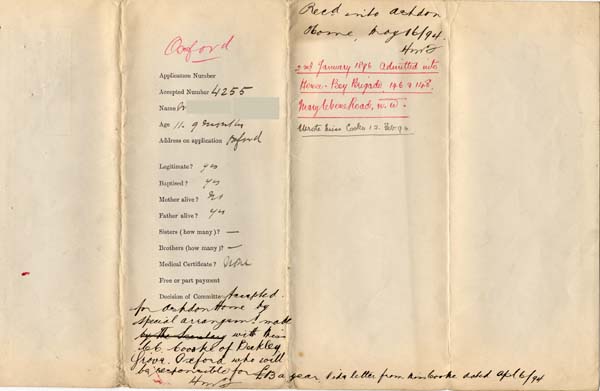 Oxford
Application Number
Accepted Number 4255
Name W
Age 11. 9 months
Address on application Oxford
Legitimate? yes
Baptised? yes
Mother alive?
Father alive? yes
Sisters (how many)? —
Brothers (how many)? —
Medical Certificate?
Free or part payment
Decision of Committee Accepted.
for Ashdon Home by
special arrangemt. made
by the Secretary with Miss
of Beckley
Grove, Oxford, who will
be responsible for £13 a year. Vide letter from dated Apl 6/94
Recd into Ashdon
Home, May 16/94.
2nd January 1896 Admitted into
House-Boy Brigade, 146 & 148,
Marylebone Road, N.W.
Wrote Miss Cooke 12 Feb 96